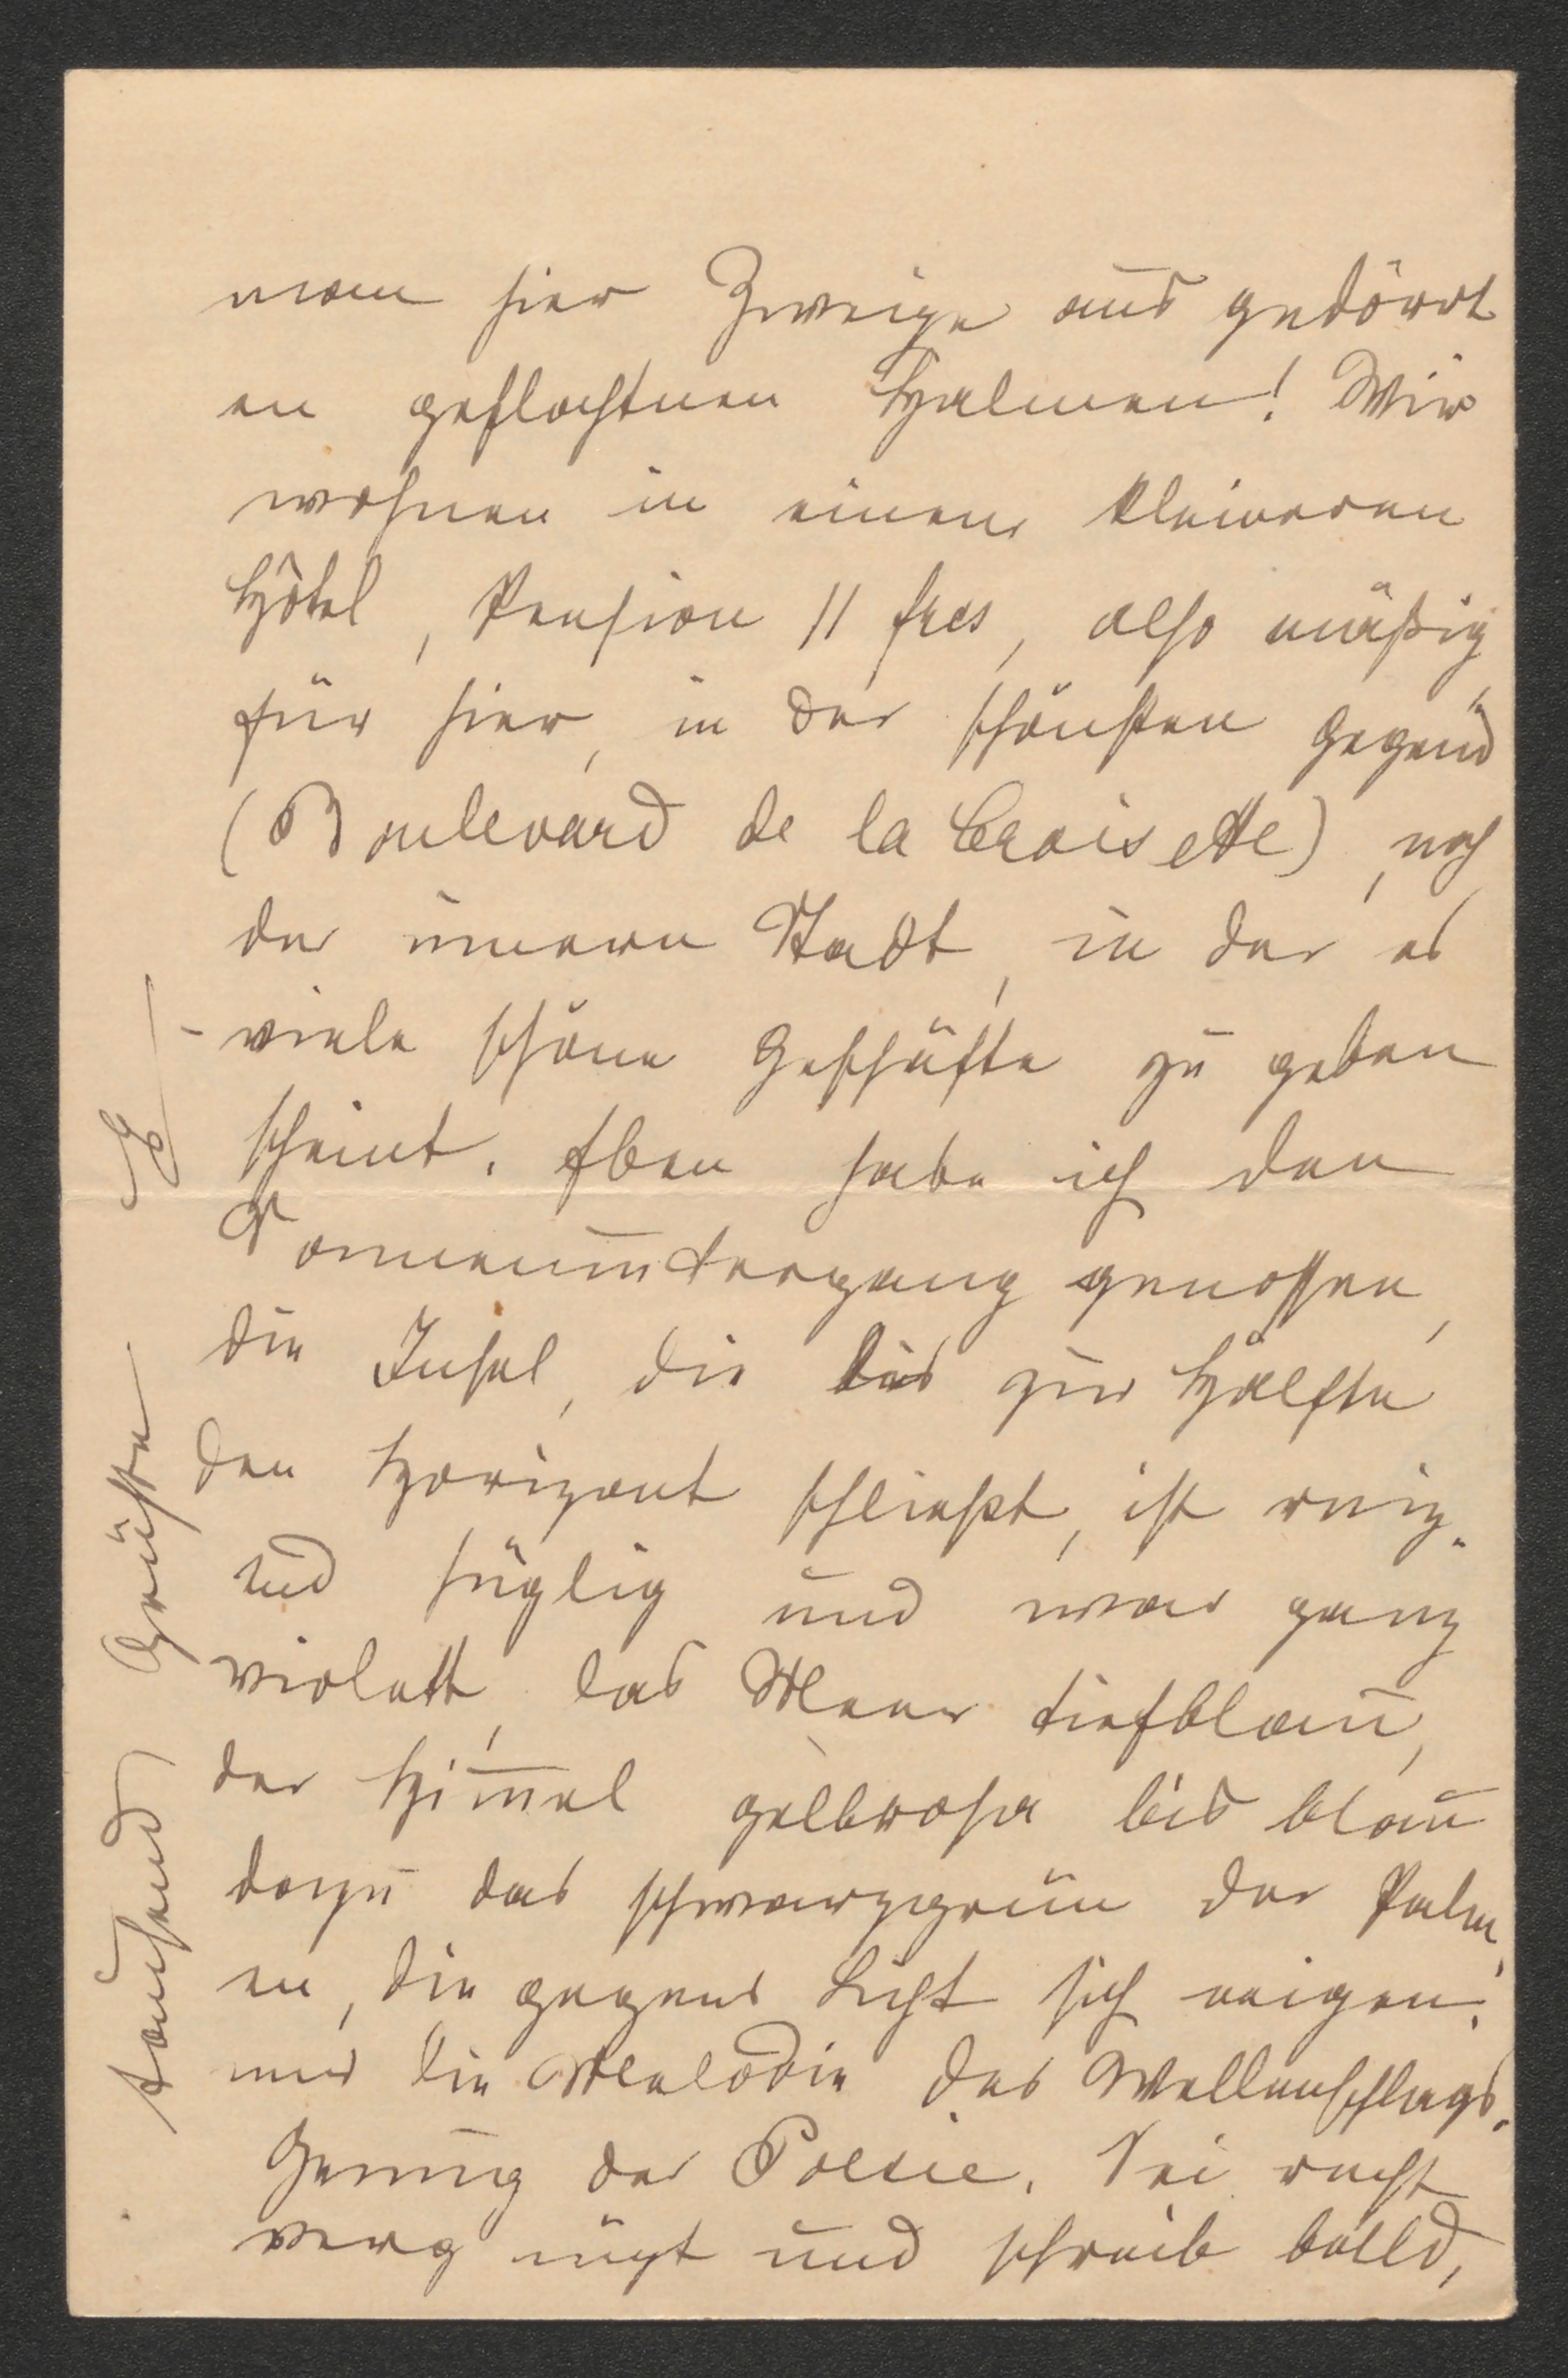 man hier Zweige aus gedörrt
en geflochtnen Halmen! Wir
wohnen in einem kleineren
Hôtel, Pension 11 frcs, also mäßig
für hier, in der schönsten Gegend
(Boulevard de la Croisette), nah
der innern Stadt, in der es
viele schöne Geschäfte zu geben
scheint. Eben habe ich den
Sonnenuntergang genossen,
die Insel, die bis zur Hälfte
den Horizont schließt, ist
und hüglig und war ganz
violett, das Meer tiefblau,
der Himmel gelbrosa bis blau
dazu das schwarzgrün der Palm
en, die gegens Licht sich neigen.
nur die Melodie des Wellenschlags.
Genug der Poesie. Sei recht
vergnügt und schreib balld,
tausend Grüsse